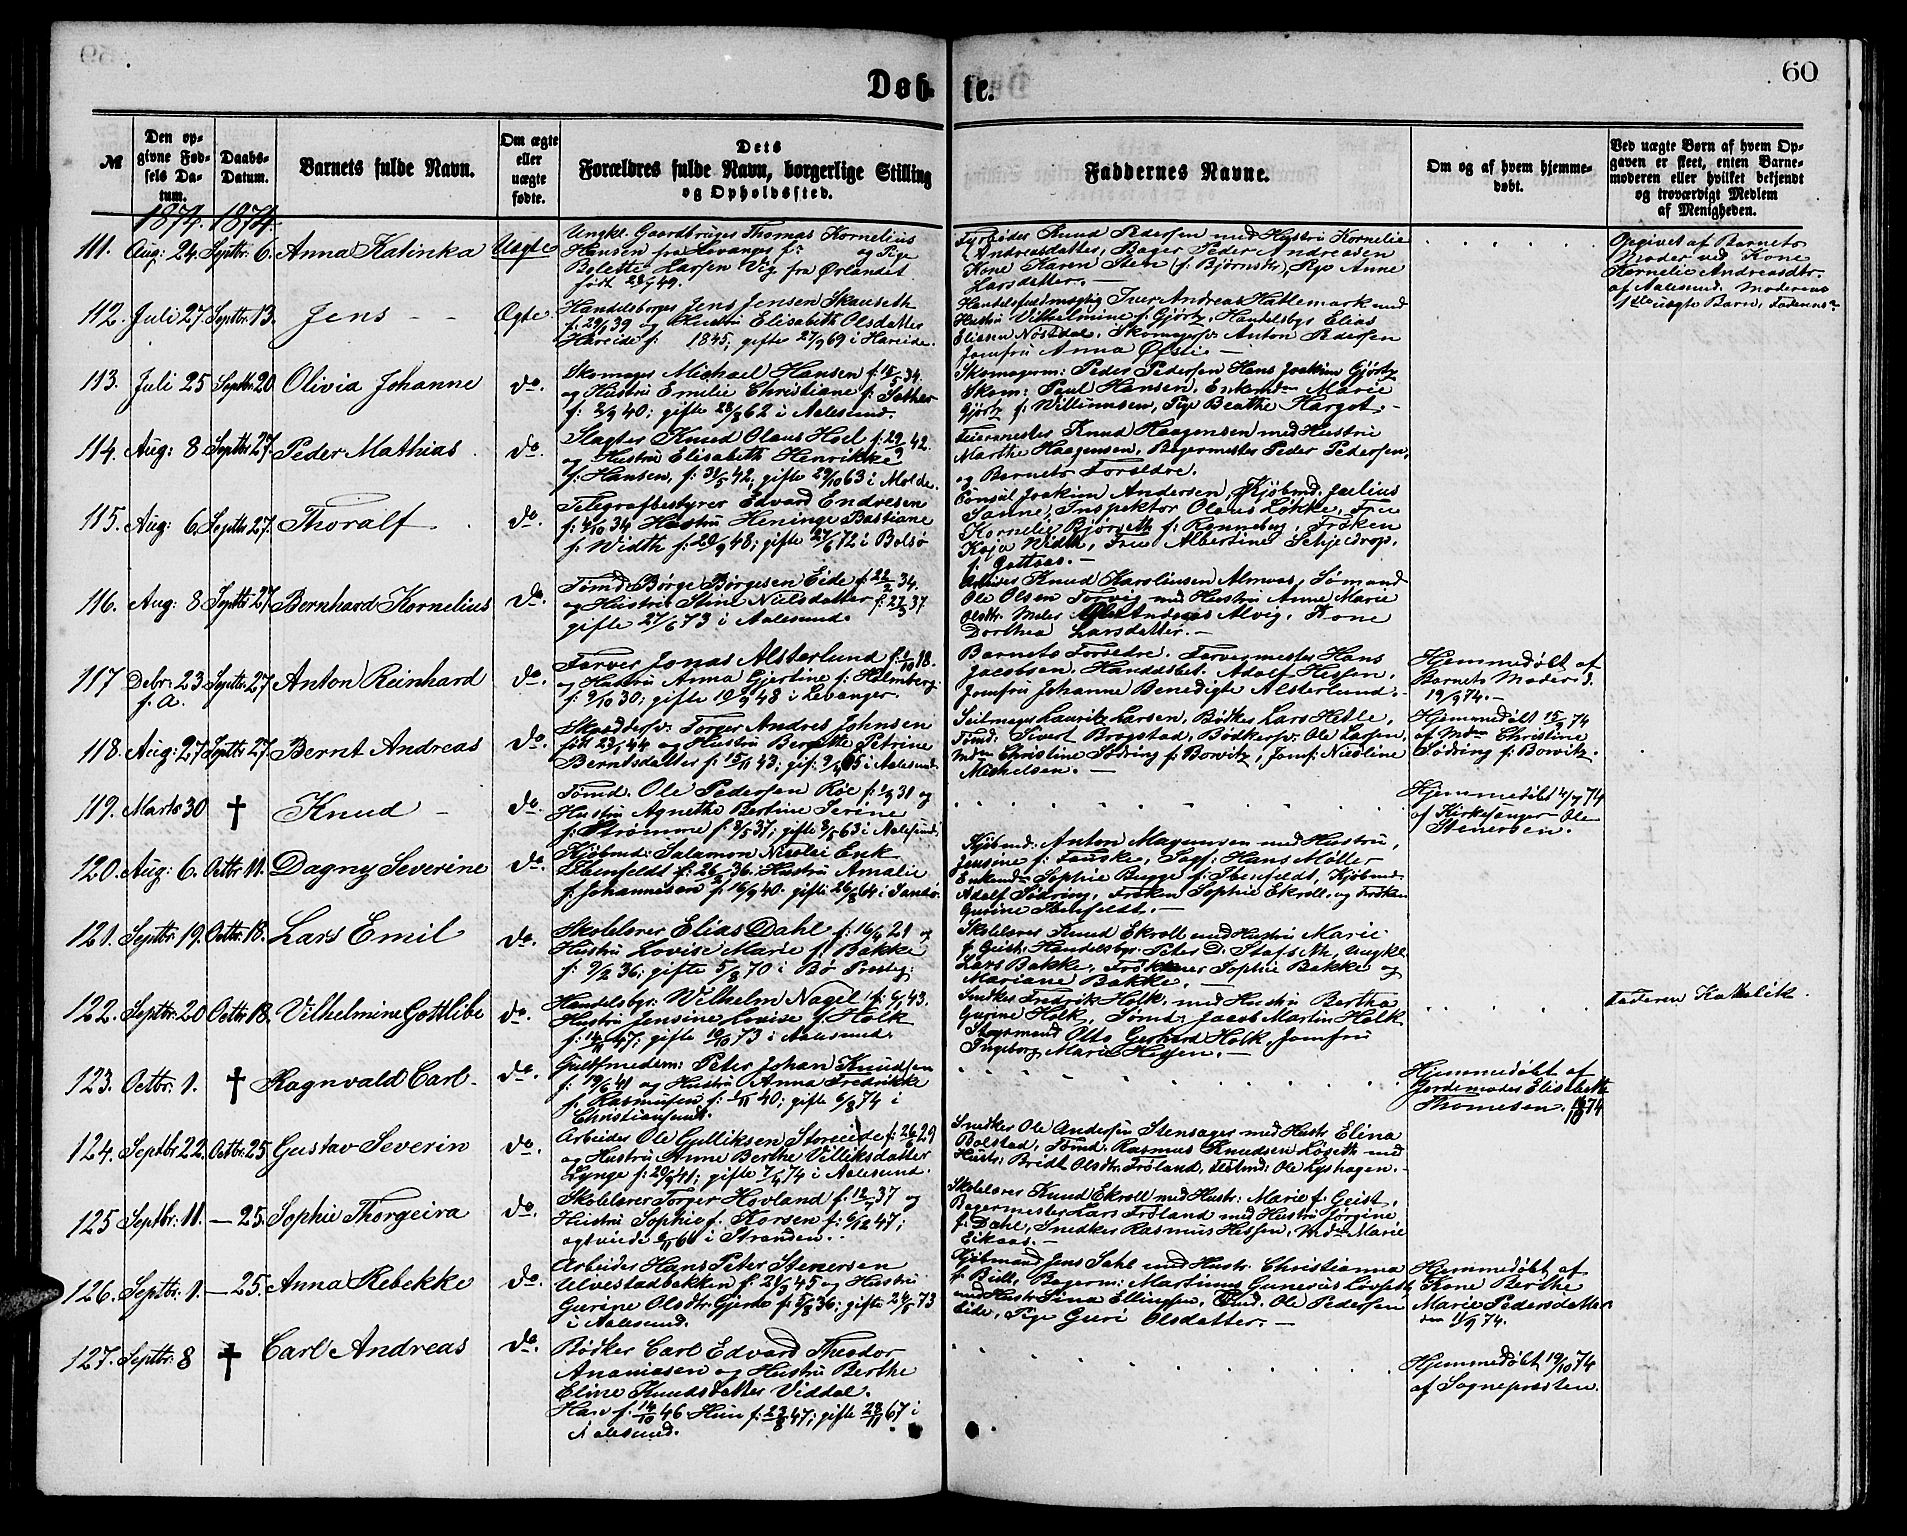 60
Døbte.
№
Den opgivne Fødsels Datum.
Daabs-Datum.
Barnets fulde Navn.
Om ægte eller uægte fødte.
Dets Forældres fulde Navn, borgerlige Stilling og Opholdssted.
Faddernes Navne.
Om og af hvem hjemmedøbt.
Ved uægte Børn af hvem Opgaven er skeet, enten Barnemoderen eller hvilket bekjendt og troværdigt Medlem af Menigheden.
1874. 1874.
111. Aug: 24. Septbr: 6. Anna Katinka Uægte
Ungkl. Gaardbruger Thomas Kornelius
Hansen fra Levanger og Pige
Bolette Larsen Vig fra Ørlandet
født
Fyrbøder Knud Pedersen med Hustru Kornelie
Andreasdatter, Bager Peder Andreasen
Kone Karen Steen f: Bjørnstr, Pige Anne
Larsdatter. —
Opgivet af Barnets
Moder ved Kone
Kornelie Andreasdtr.
af Aalesund. Moderens
1ste uægte Barn, Faderens
112. Juli 27. Septbr: 13. Jens Ægte.
Handelsborger Jens Jensen Skauseth
f. 29/39 og Hustru Elisabeth Olsdatter
Hareide f: 1845, gifte 27/9 69 i Hareide.
Handelsfuldmægtig Iver Andreas Hatlemark med
Hustru Vilhelmine f. Gjørtz, Handelsbgr Elias
Eliasen Nøstdal, Skomagersv: Anton Pedersen
Jomfru Anna Øfsti —
113. Juli 25 Septbr: 20. Olivia Johanne do.
Skomager Michael Hansen f: 34.
og Hustru Emilie Christiane f: Sather
f: 2/9 40; gifte 28/8 62 i Aalesund.
Skomagerm: Peder Pedersen Hans Joakim Gjørtz
Skom: Paul Hansen, Enkemdm Marie
Gjørtz f: Willumsen, Pige Beathe Hargot. —
114. Aug: 8 Septbr: 27. Peder Mathias do.
Slagter Knud Olaus Hoel f: 42.
og Hustru Elisabeth Henrikke
f: Hansen, f: 31/5 42, gifte 29/10 63 i Molde.
Feiermester Knud Haagensen med Hustru
Marthe Haagensen, Bagermester Peder Pedersen,
og Barnets Forældre.
115. Aug: 6. Septbr: 27. Thoralf do.
Telegrafbestyrer Edvard Endresen
f: 4/10 34 Hustru Heninge Bastiane
f: Width f: 20/9 48; gifte 27/6 72 i Bolsø
Consul Joakim Andersen, Kjøbmd. Julius
Sanne, Inspektor Olaus Løkke, Fru
Kornelie Bjørseth f: Ronneberg, Frøken
Kaja Width, Frue Albertine Schjedrop,
f: Gottaas. —
116. Aug: 8 Septbr 27. Bernhard Kornelius do.
Tømd. Børge Børgesen Eide f: 22/2 34.
og Hustru Stine Nielsdatter f: 37
gifte 27/6 73 i Aalesund.
Arbeider Knud Karolinsen Almaas, Sømand
Ole Olsen Torvig med Hustru Anne Marie
Olsdtr. Maler Ole Andreas Alvig, Kone
Dorthea Larsdatter. —
117 Debr: 23 f. A. Septbr: 27. Anton Reinhard do.
Farver Jonas Alsterlund f: 18.
og Hustru Anna Gjertine f: Holmberg
f: 9/10 30; gifte 10/9 48 i Levanger.
Barnets Forældre. Farvermester Hans
Jacobsen. Handelsbet. Adolf Hessen,
Jomfru Johanne Benedigte Alsterlund. —
Hjemmedøbt af
Barnets Moder d.
19/9 74. —
118. Aug: 27. Septbr: 27. Bernt Andreas do.
Skræddersv: Torger Andres Johnsen
født 23/4 44 og Hustru Bergitte Petrine
Berntsdatter f: 43; gif: i Aalesund
Seilmager Lauritz Larsen, Bødker Lars Hetle,
Tømd: Sivert Brogstad, Bødkersv: Ole Larsen,
Mdm Christine Sødring f: Bowitz, Jomf: Nicoline
Michelsen. —
Hjemmedøbt 15/9 74
af Mdm Christine
Sødring f: Bowitz.
119. Marts 30 † Knud do.
Tømd. Ole Pedersen Röe f: 31 og
Hustru Agnethe Bertine Serine
f: Strømme f: 9/5 37; gifte 63 i Aalesund
Hjemmedøbt 4/7 74
af Kirkesanger Ole
Stenersen.
120. Aug: 6. Octbr: 11. Dagny Severine do.
Kjøbmd: Salamon Nicolai Enk
Ibenfeldt f: 26/2 36; Hustru Amalie
f: Johannesen f: 16/9 40. gifte 26/8 64 i Sandø.
Kjøbmd: Anton Magensen med Hustru,
Jensine f: Fauske, Sagf: Hans Møller
Enkemdm Sophie Bugge f: Ibenfeldt, Kjøbmd
Adolf Sødring, Frøken Sophie Ekroll, og Frøken
Gurine Ibenfeldt. —
121. Septbr: 19. Octbr: 18. Lars Emil do.
Skolelærer Elias Dahl f: 16/4 21 og
Hustru Lovise Marie f: Bakke
f: 9/2 36; gifte 5/8 70 i Bø Prestg:
Skolelærer Knud Ekroll med Hustru Marie
f: Geist; Handelsbgr. Peter D. Stafseth, Ungkl.
Lars Bakke, Frøkener Sophie Bakke og
Mariane Bakke. —
122. Septbr: 20 Octbr: 18. Vilhelmine Gottlibe do.
Handelsbgr: Wilhelm Nagel f: 43.
Hustru Jensine Lovise f: Holk
f: 47; gifte 73 i Aalesund.
Snedker Fredrik Holk, med Hustru Bertha
Gurine Holk, Tømd: Jacob Martin Holk
Styrmand Otto Gerhard Holk, Jomfru
Ingeborg Marie Hessen. —
Faderen Katholik.
123. Octbr: 1. † Ragnvald Carl do.
Guldsmedem: Peter Johan Knudsen
f: 19/6 41 og Hustru Anna Fredrikke
f: Rasmusen f: 40; gifte 6/8 74 i
Christiansund.
Hjemmedøbt af
Jordemoder Elisabeth
Thomesen. 74
124. Septbr 22. Octbr: 25 Gustav Severin do.
Arbeider Ole Gulliksen Storeide f: 26/6 29
og Hustru Anne Berthe Villiksdatter
Lynge f: 20/9 41; gifte 7/4 74 i Aalesund.
Snedker Ole Andersen Stensager med Hustr. Elina
Bolstad, Tømd: Rasmus Knudsen Løseth med
Hustr: Bridt Olsdtr. Frøland, Tømd: Ole Lyshagen. —
125 Septbr: 11. — 25. Sophie Thorgeira do.
Skolelærer Torger Hovland f: 37 og
Hustru Sophie f. Korsen f: 6/12 47;
ægteviede i Stranden.
Skolelærer Knud Ekroll med Hustr: Marie f: Geist,
Bagermester Lars Frøland med Hustru Jørgine
f: Dahl, Snedker Rasmus Hessen, Mdm Marie
Eikaas. —
126. Septbr: 1. — 25. Anna Rebekke do.
Arbeider Hans Peter Stenersen
Ulvestadbakken f: 21/3 45 og Hustru
Gurine Olsdtr: Gjerde f: 36; gifte 73
i Aalesund.
Kjøbmand Jens Dahl med Hustr. Christianna
f: Bull, Bagerm: Martinus Gunerius Løvseth
med Hustr Sina Ellingsen, Tømd. Ole Pedersen
Eide, Pige Guri Olsdatter. —
Hjemmedøbt af
Kone Berthe
Marie Pedersdatter
den 11/9 74.
127. Septbr: 8 † Carl Andreas do.
Bødker Carl Edvard Theodor
Ananiasen og Hustru Berthe
Eline Knudsdatter Viddal.
Han f: 14/10 46. Hun f: 23/8 47; gifte 28/11 67 i
Aalesund.
Hjemmedøbt 19/10 74
af Sognepræsten.